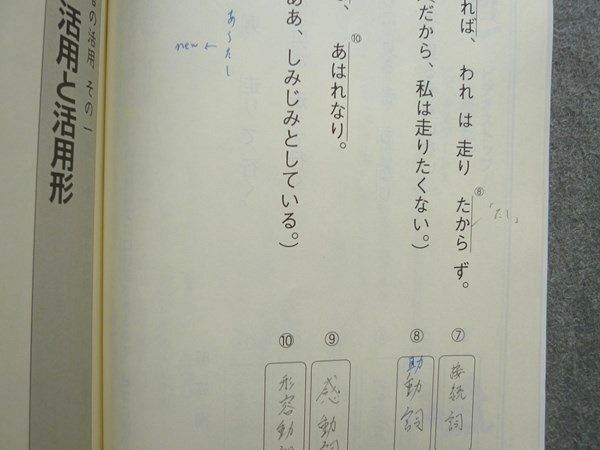 れば、われ は 走り たから ず。
⑧
「たし」
だから、私は走りたくない。)
⑩
、あはれなり。
ああ、しみじみとしている。)
あらたし
→new
の活用 その一
活用と活用形
⑦
接続詞
⑧
助動詞
⑨
感動詞
⑩
形容動詞